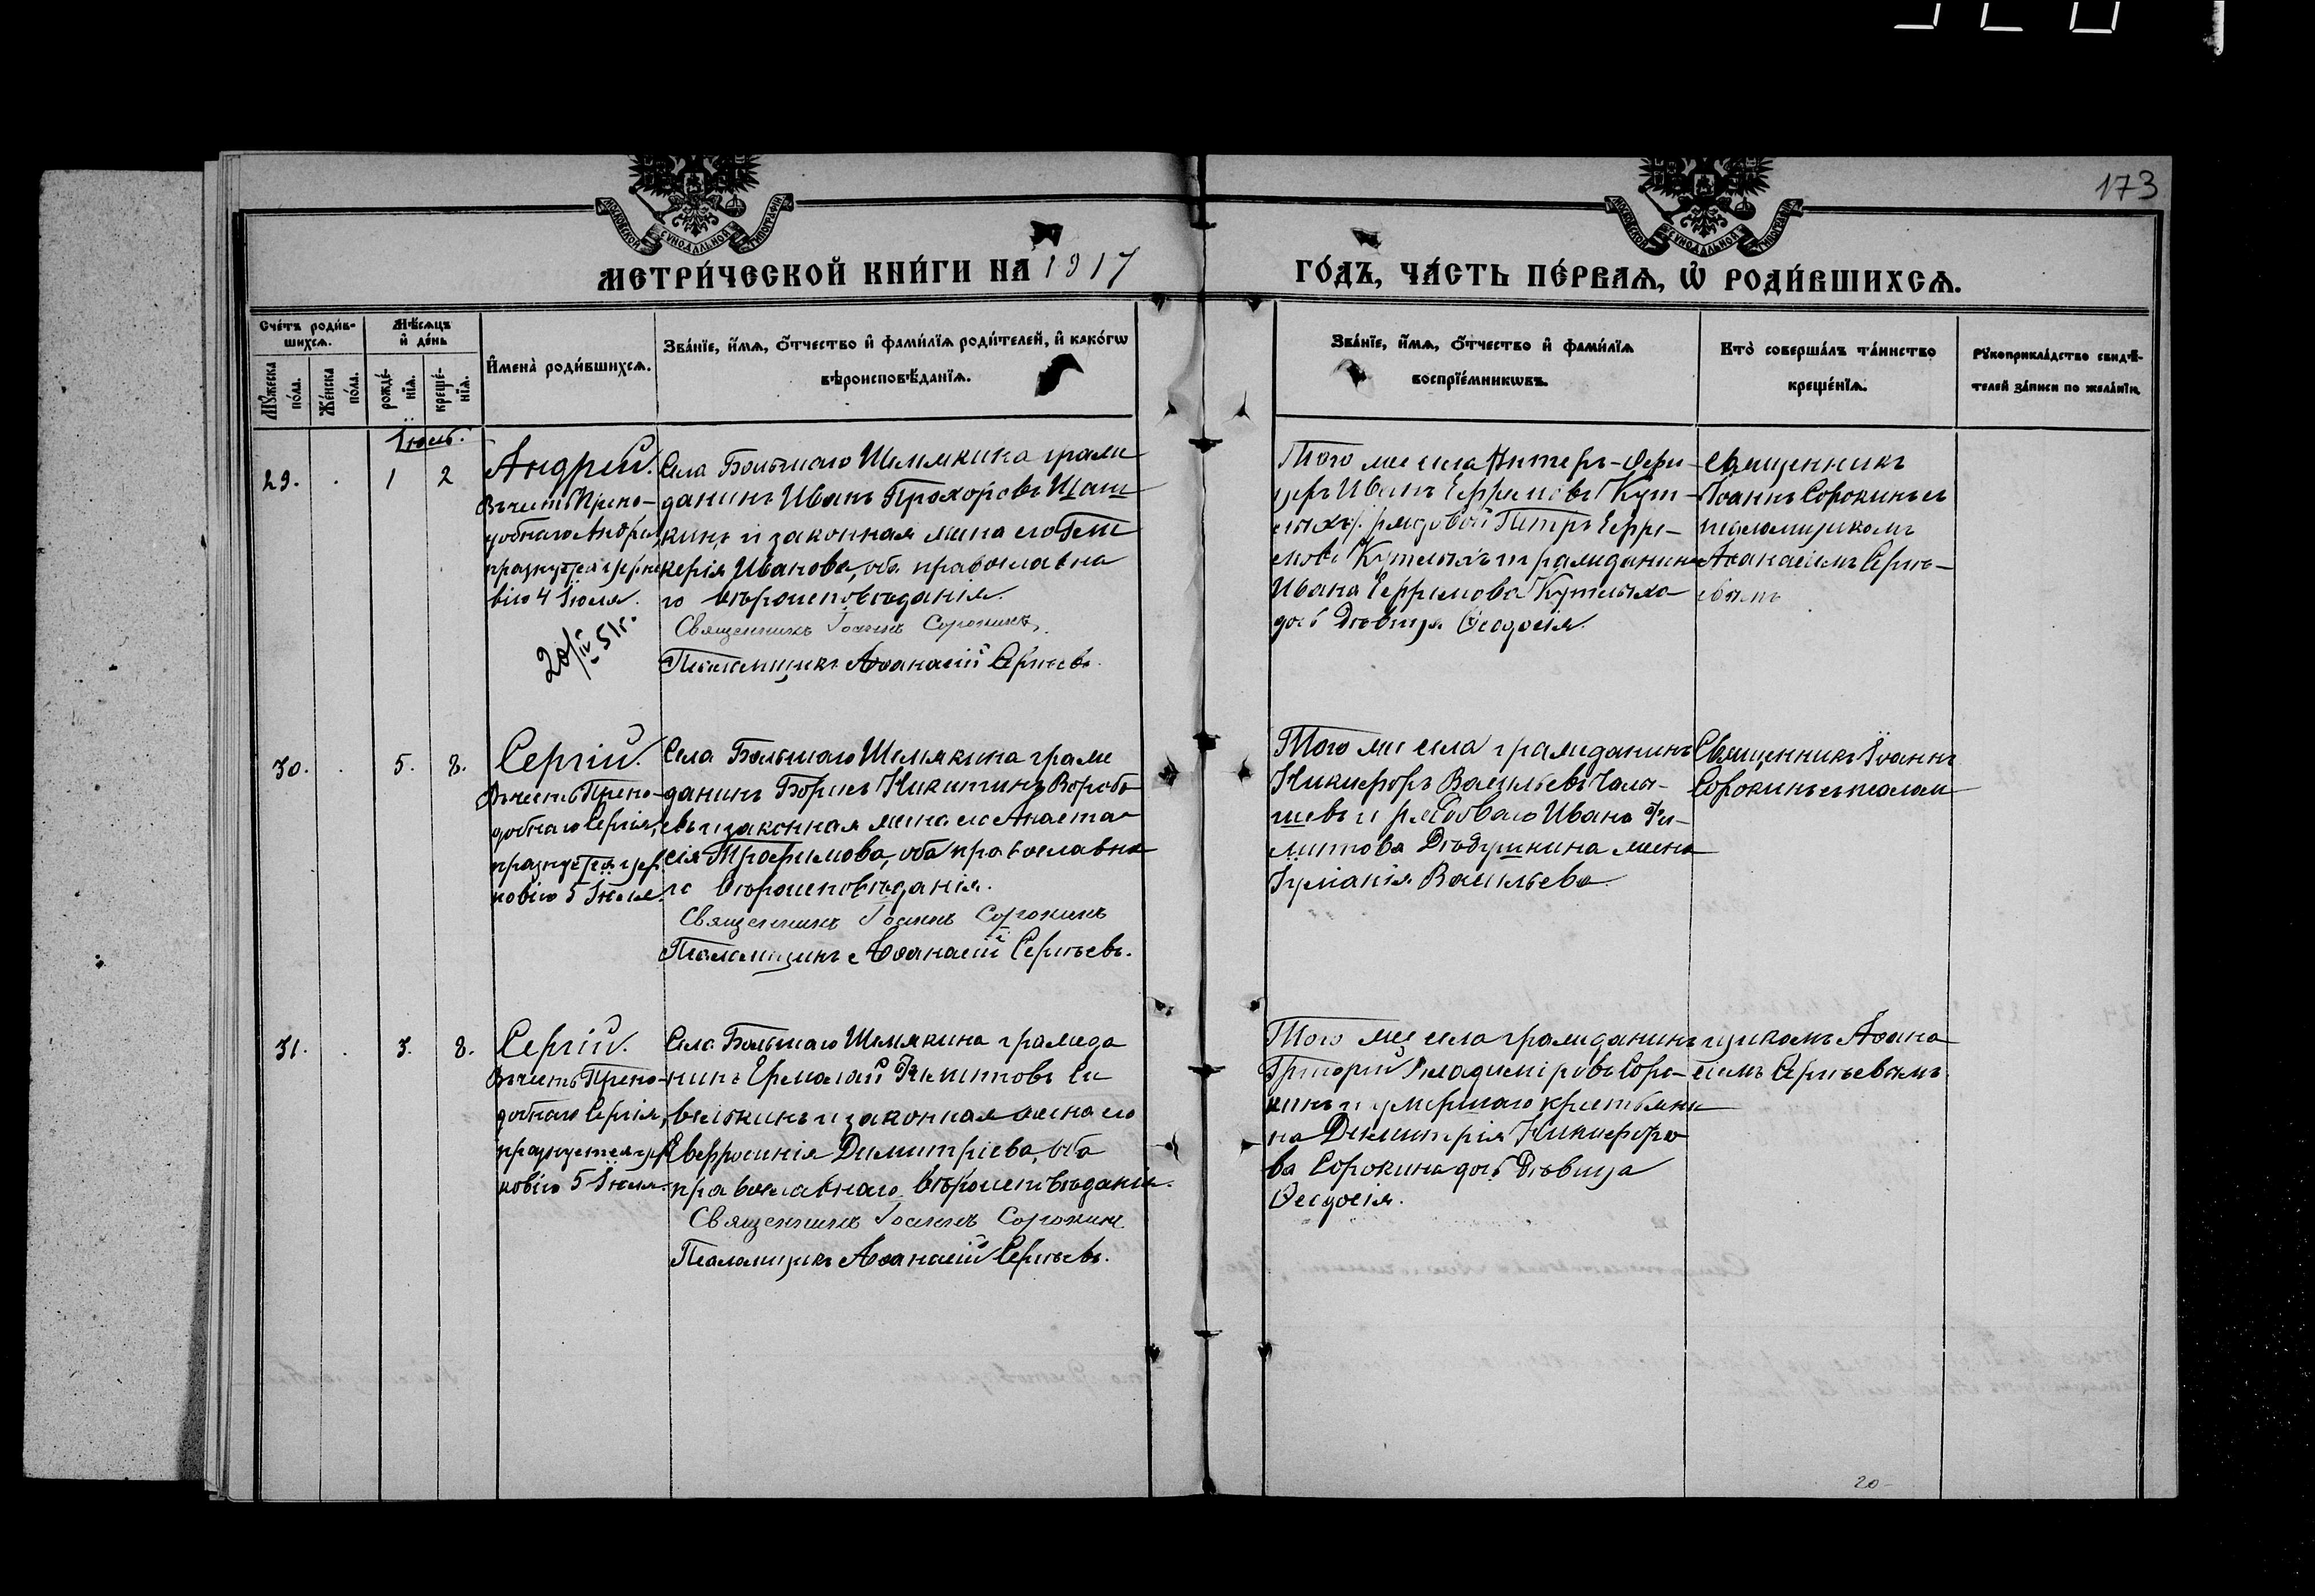 173
МОСКОВСКОЙ СѴНОДАЛЬНОЙ ТИПОГРАФІИ
МОСКОВСКОЙ СѴНОДАЛЬНОЙ ТИПОГРАФІИ
МЕТРИ́ЧЕСКОЙ КНИ́ГИ НА 1917
ГО́ДЪ, ЧА́СТЬ ПЕ́РВАѦ, Ѡ҆ РОДИ́ВШИХСѦ.
Сче́тъ роди́в-
шихсѧ.
Мѣ́сѧцъ
и҆ де́нь
Му́жеска
по́ла.
Же́нска
по́ла.
рожде́-
нїѧ.
креще́-
нїѧ.
И҆мена̀ роди́вшихсѧ.
Зва́нїе, и҆́мѧ, ѻ҆́тчество и҆ фами́лїѧ роди́телей, и҆ како́гѡ
вѣроисповѣ́данїѧ.
Зва́нїе, и҆́мѧ, ѻ҆́тчество и҆ фами́лїѧ
воспрїе́мникѡвъ.
Кто̀ соверша́лъ та́инство
креще́нїѧ.
Рꙋкоприкла́дство свидѣ́-
телей за́писи по жела́нїю.
Іюль.
29.
1
2
Андрей.
Въ честь Препо-
добнаго Андрея,
празнуется церко
вію 4 Іюля.
20/IV-51г.
Села Большаго Шемякина граж
данинъ Иванъ Прохоровъ Шаш
кинъ и законная жена его Гли
керія Иванова, оба православна
го вѣроисповѣданія.
Священникъ Іоаннъ Сорокинъ.
Псаломщикъ Аѳанасій Сергѣевъ.
Того же села Унтеръ-офи-
церъ Иванъ Ефремовъ
рядовой Петръ Ефре-
мовъ и гражданина
Ивана Ефремова
дочь Дѣвица Ѳеодосія.
Священникъ
Іоаннъ Сорокинъ съ
псаломщикомъ
Аѳанасіемъ Сергѣ-
евымъ
30.
5.
8.
Сергій.
Въ честь Препо-
добнаго Сергія,
празнуется цер
ковію 5 Іюля.
Села Большаго Шемякина граж
данинъ Борисъ Никитинъ Воробь
евъ и законная жена его Анаста
сія Трофимова, оба православна
го вѣроисповѣданія.
Священникъ Іоаннъ Сорокинъ
Псаломщикъ Аѳанасій Сергѣевъ.
Того же села гражданинъ
Никифоръ Васильевъ Чалы-
шевъ и рядоваго Ивана Фи-
липпова Дѣдушкина жена
Іуліанія Васильева.
Священникъ Іоаннъ
Сорокинъ съ псалом
31.
3.
8.
Сергій.
Въ честь Препо-
добнаго Сергія,
празнуется цер
ковію 5 Іюля.
Села Большаго Шемякина гражда
нинъ Ермолай Филипповъ Са
велькинъ и законная жена его
Евфросинія Димитріева, оба
православнаго вѣроисповѣданія.
Священникъ Іоаннъ Сорокинъ
Псаломщикъ Аѳанасій Сергѣевъ.
Того же села гражданинъ
Григорій Владиміровъ Соро-
кинъ и умершаго крестьяни
на Димитрія Никифоро
ва Сорокина дочь Дѣвица
Ѳеодосія.
щикомъ Аѳана
сіемъ Сергѣевымъ
20-